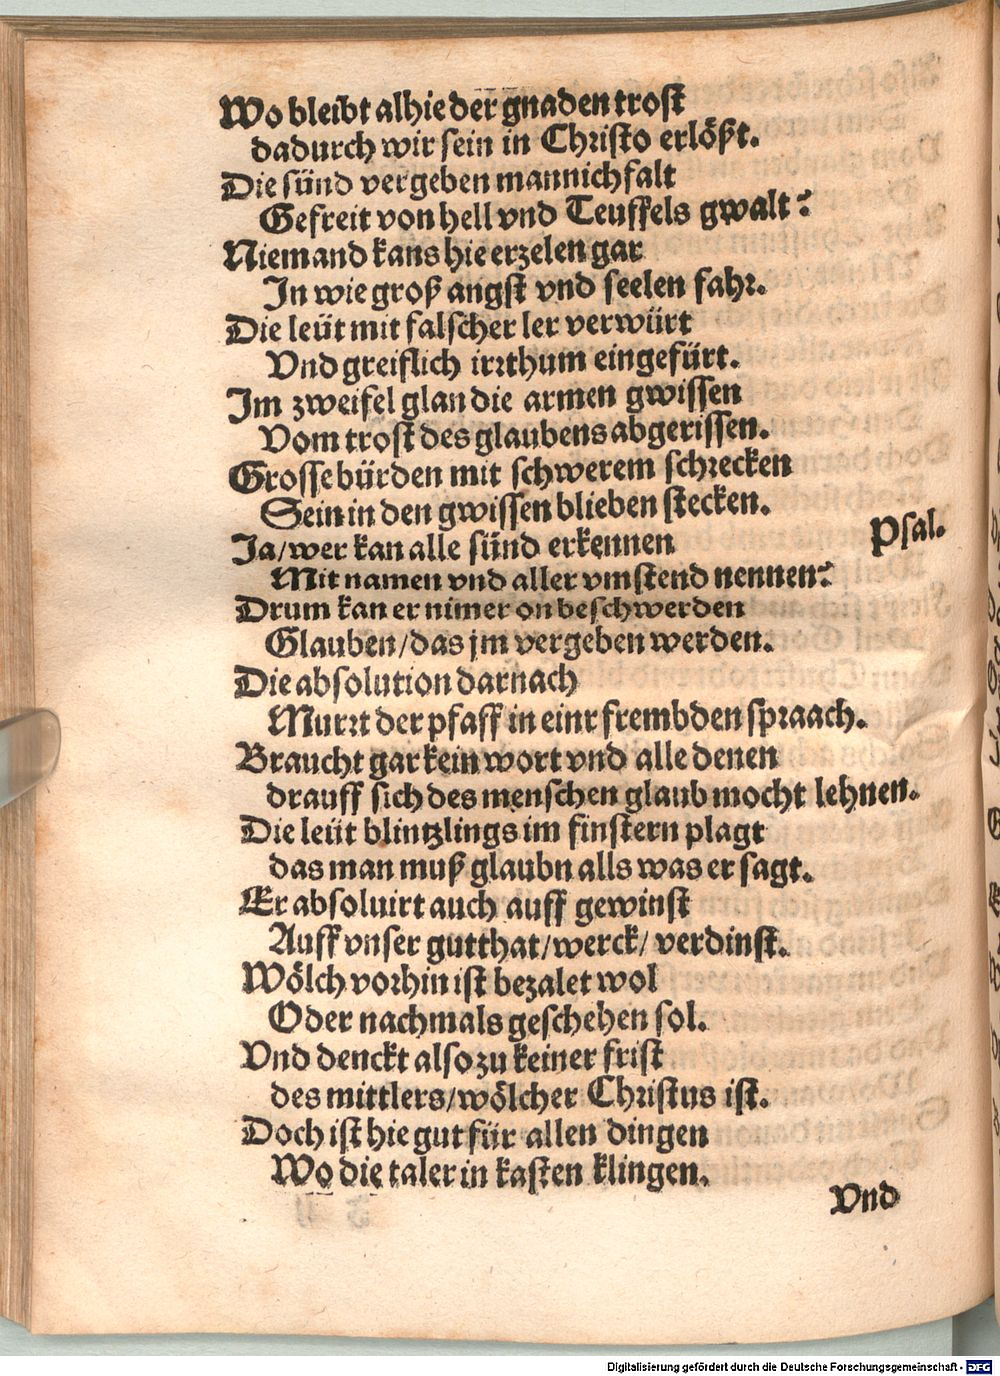 Wo bleibt alhie der gnaden trost
dadurch wir sein in Christo erlößt.
Die sünd vergeben mannichfalt
Gefreit von hell vnd Teuffels gwalt?
Niemand kans hie erzelen gar
In wie groß angst vnd seelen fahr.
Die leüt mit falscher ler verwürt
Vnd greiflich irrthum eingefürt.
Im zweifel glan die armen gwissen
Vom trost des glaubens abgerissen.
Grosse bürden mit schwerem schrecken
Sein in den gwissen blieben stecken.
Ja/wer kan alle sünd erkennen
Psal.
Mit namen vnd aller vmstend nennen?
Drum kan er nimer on beschwerden
Glauben/das jm vergeben werden.
Die absolution darnach
Murrt der pfaff in einr frembden spraach.
Braucht gar kein wort vnd alle denen
drauff sich des menschen glaub mocht lehnen.
Die leüt blintzlings im finstern plagt
das man muß glaubn alls was er sagt.
Er absoluirt auch auff gewinst
Auff vnser gutthat/werck/ verdinst.
Wölch vorhin ist bezalet wol
Oder nachmals geschehen sol.
Vnd denckt also zu keiner frist
des mittlers/wölcher Christus ist.
Doch ist hie gut für allen dingen
Wo die taler in kasten klingen.
Vnd
Digitalisierung gefördert durch die Deutsche Forschungsgemeinschaft - DFG